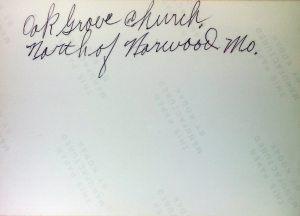 Oak Grove Church.
North of Norwood Mo.